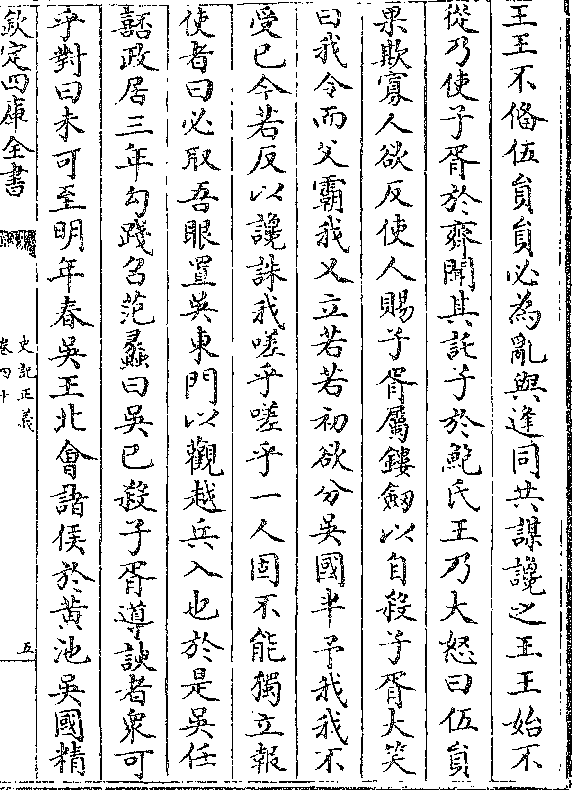 王王不備伍員員必為亂與逢同共謀讒之王王始不
從乃使子胥於齊聞其託子於鮑氏王乃大怒曰伍員
果欺寡人欲反使人賜子胥屬鏤劒以自殺子胥大笑
曰我令而父霸我又立若若初欲分吳國半予我我不
受已今若反以讒誅我嗟乎嗟乎一人固不能獨立報
使者曰必取吾眼置吳東門以觀越兵入也於是吳任
嚭政居三年勾踐召范蠡曰吳已殺子胥導諛者衆可
乎對曰未可至明年春吳王北會諸侯於黃池吳國精
欽定四庫全書
史記正義
卷四十
五